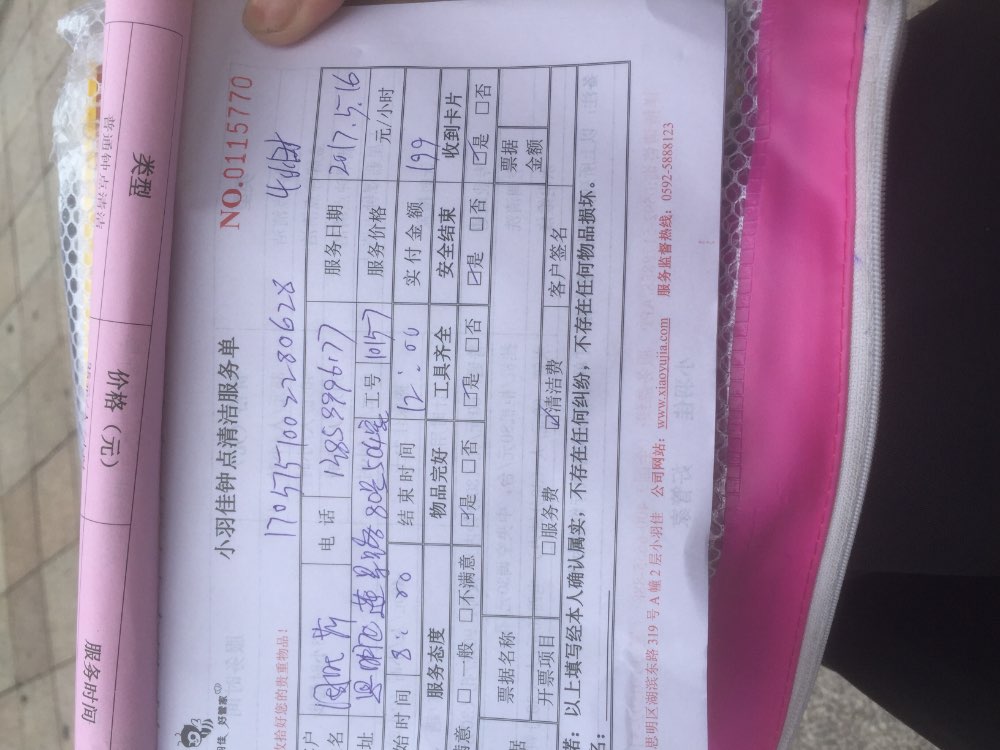 类型
价格（元）
服务时间
普通钟点清洁
小羽佳钟点清洁服务单
NO.0115770
好管家
收拾好您的贵重物品！
1705151002280628 4小时
户名 电话 服务日期 2017.5.16
址 莲岳路80号504室 工号 10157 服务价格 元/小时
始时间 8:00 结束时间 12:00 实付金额 199
服务态度 物品完好 工具齐全 安全结束 收到卡片
满意 □一般 □不满意 ☑是 □否 ☑是 □否 ☑是 □否 ☑是 □否
票据名称 票据金额
开票项目 □服务费 ☑清洁费 客户签名
者：以上填写经本人确认属实，不存在任何纠纷，不存在任何物品损坏。
名：
思明区湖滨东路 319 号 A 幢 2 层小羽佳 公司网站：www.xiaoyujia.com 服务监督热线：0592-5888123